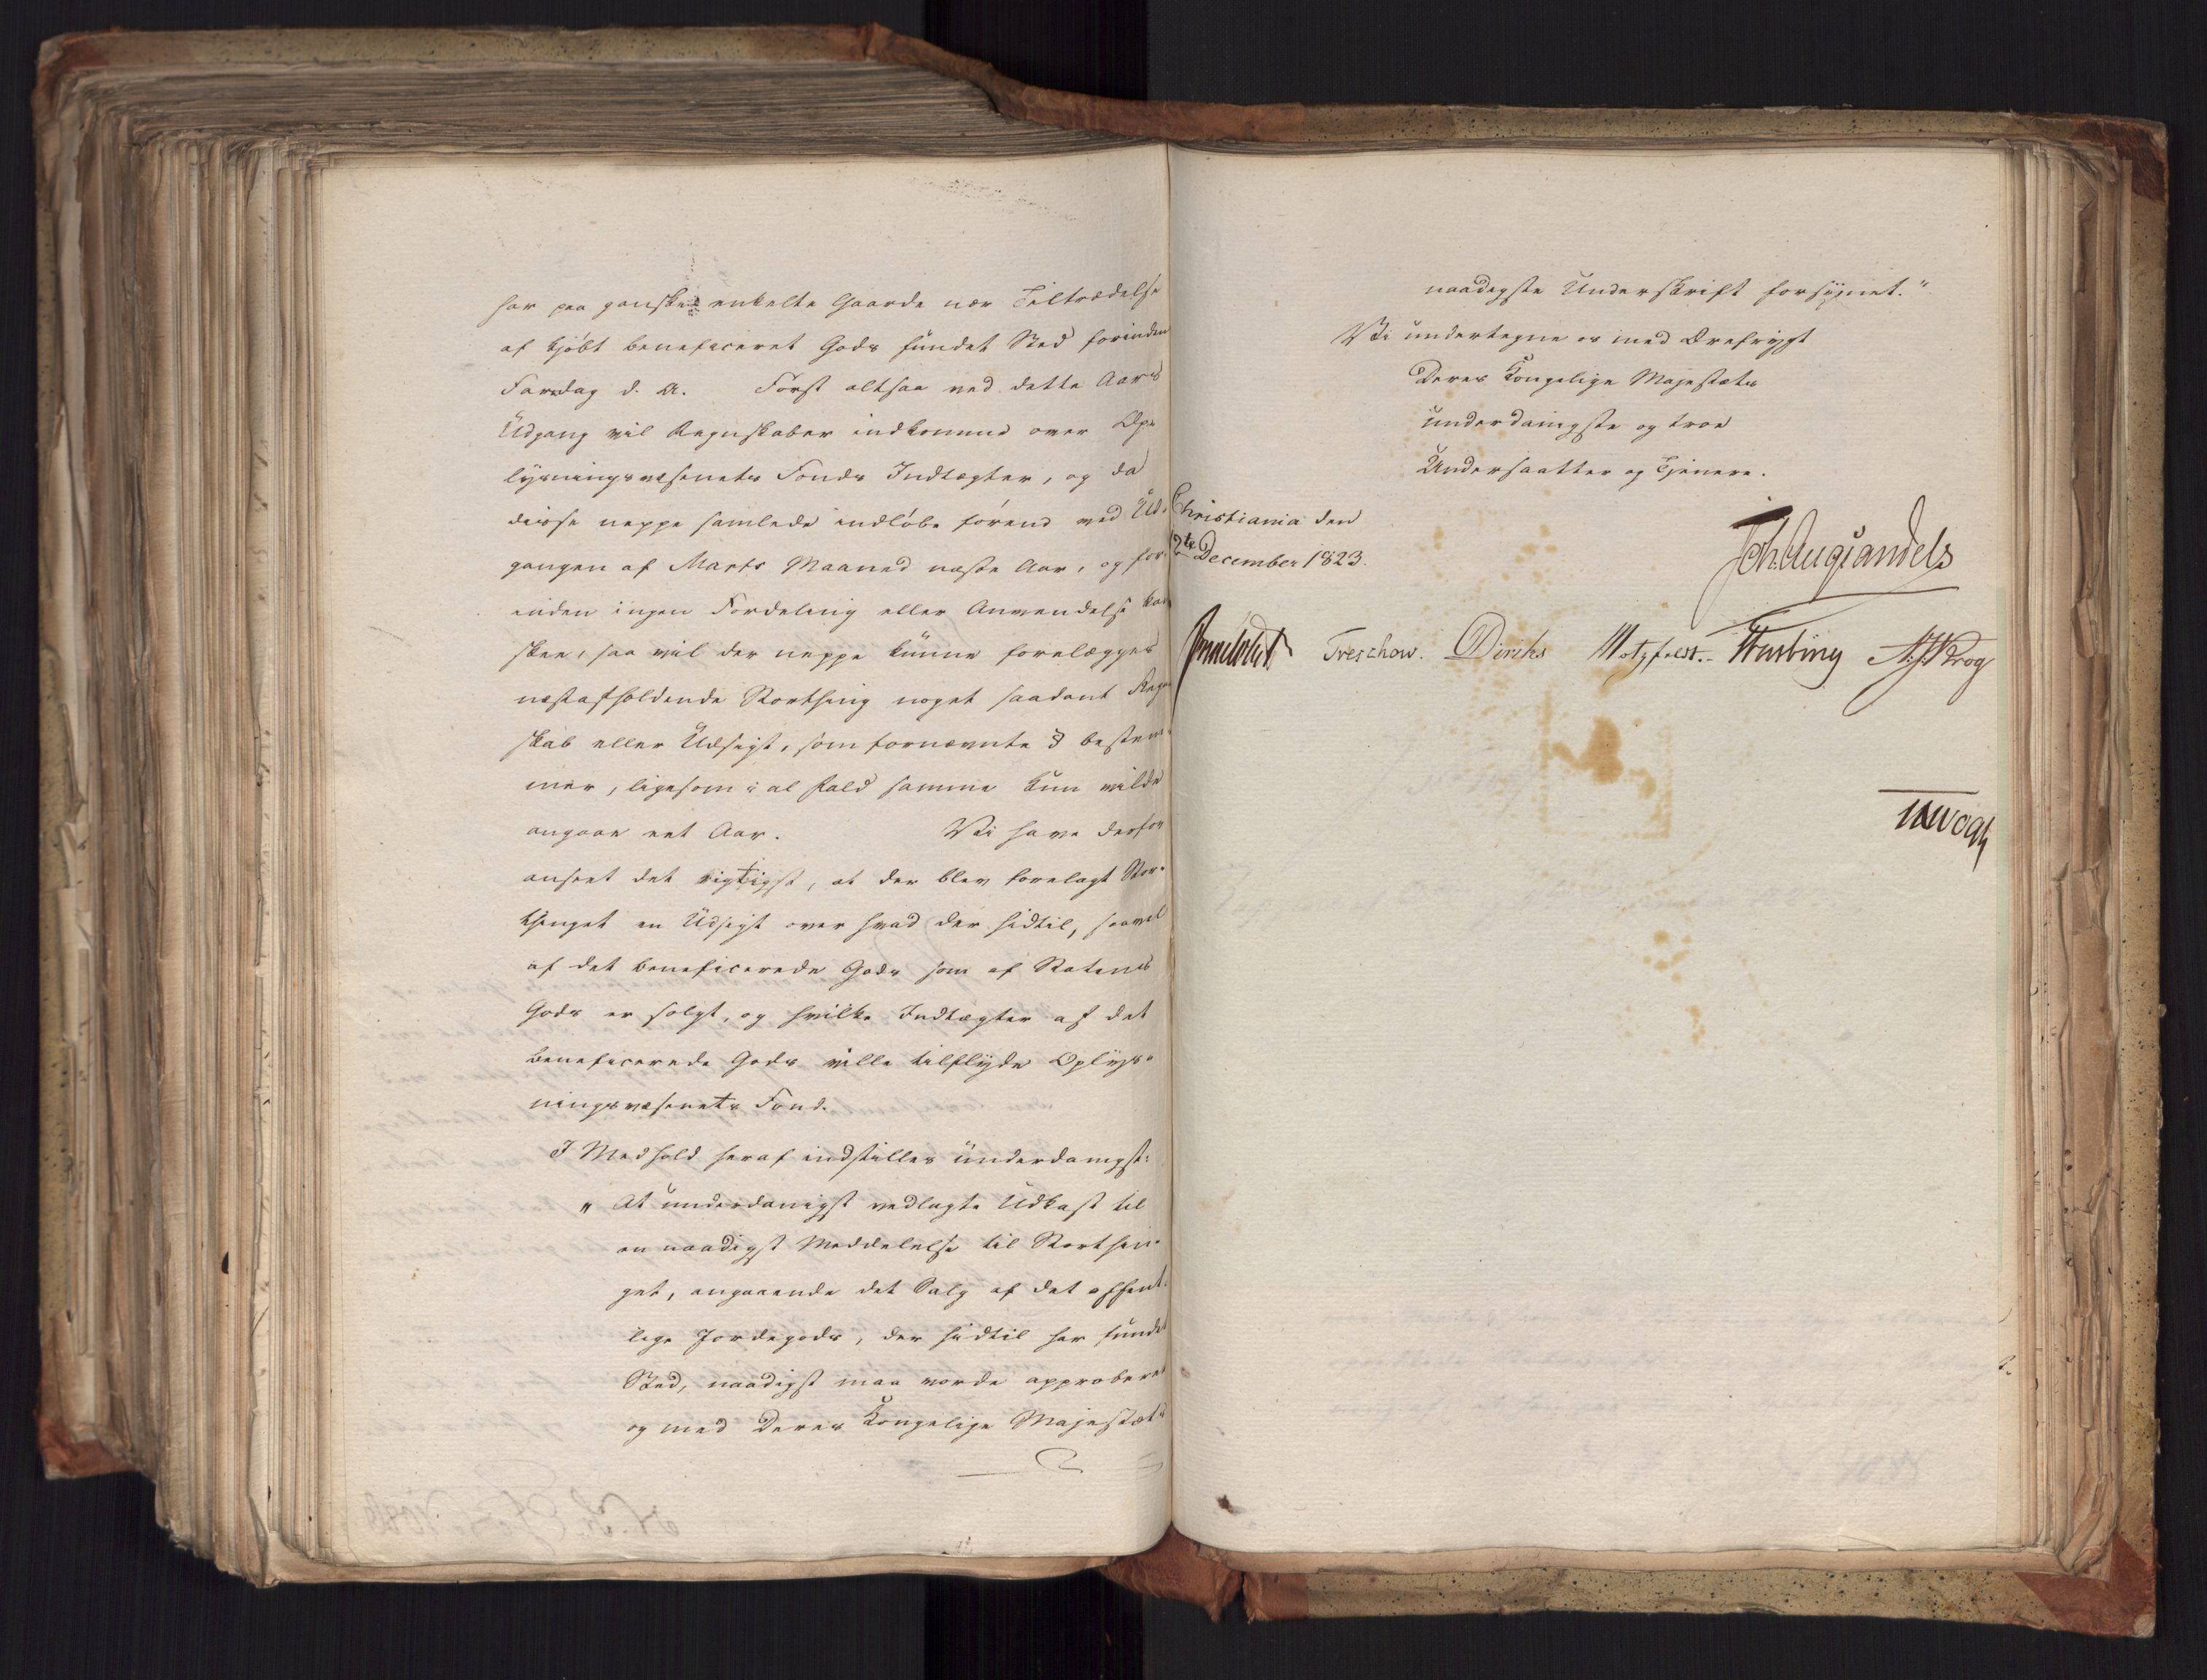 har paa ganske enkelte Gaarde nær Tiltrædelse
af kjøbt beneficeret Gods fundet Sted forinden
Faredag d. A. Först altsaa ved dette Aars
Udgang vil Regnskaber indkomme over Op-
lysningsvæsenets Fonds Indtægter, og da
disse neppe samlede indløbe førend ved Ud-
gangen af Marts Maaned næste Aar, og for-
inden ingen Fordeling eller Anvendelse kan
skee, saa vil der neppe kunne forelægges
næstafholdende Storthing noget saadant Regn-
skab eller Udsigt, som fornævnte § bestem-
mer, ligesom i al Fald samme kun vilde
angaae eet Aar. Vi have derfor
anseet det rigtigst, at der blev forelagt Stor-
thinget en Udsigt over hvad der hidtil, saavel
af det beneficerede Gods som af Statens
Gods er solgt, og hvilke Indtægter af det
beneficerede Gods ville tilflyde Oplys-
ningsvæsenets Fond.
I Medhold heraf indstilles underdanigst:
" At underdanigst vedlagte Udkast til
en naadigst Meddelelse til Storthin-
get, angaaende det Salg af det offent-
lige Jordegods, der hidtil har fundet
Sted, naadigst maa vorde approberet
og med Deres Kongelige Majestæts
naadigste Underskrift forsynet."
Vi undertegne os med Ærefrygt
Deres Kongelige Majestæts
underdanigste og troe
Undersaatter og Tjenere.
Christiania den
2te December 1823.
Joh. Aug. Sandels
Sommerhielm Treschow. Diriks Motzfeldt. Fasting N.J. Krog